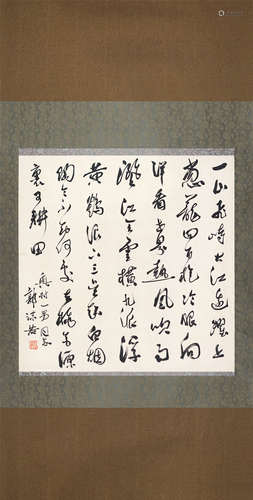 一山飛峙大江邊躍上
蔥蘢四百旋冷眼向
洋看世界熱風吹雨
灑江天雲橫九派浮
黃鶴浪下三吳起白煙
陶令不知何處去桃花源
裏可耕田
同志
郭沫若